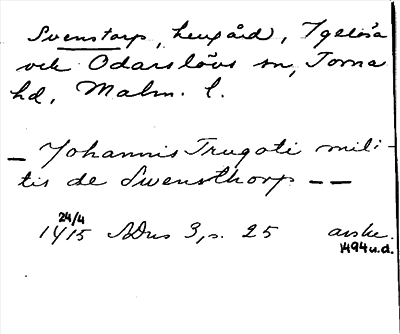 Svenstorp, herrgård, Igelösa
och Odarslövs sn, Torna
hd, Malm. l.
– Johannis Trugoti mili-
tis de Swensthorp – –
24/4
1415 ADns 3, s. 25 avskr.
1494 u.d.